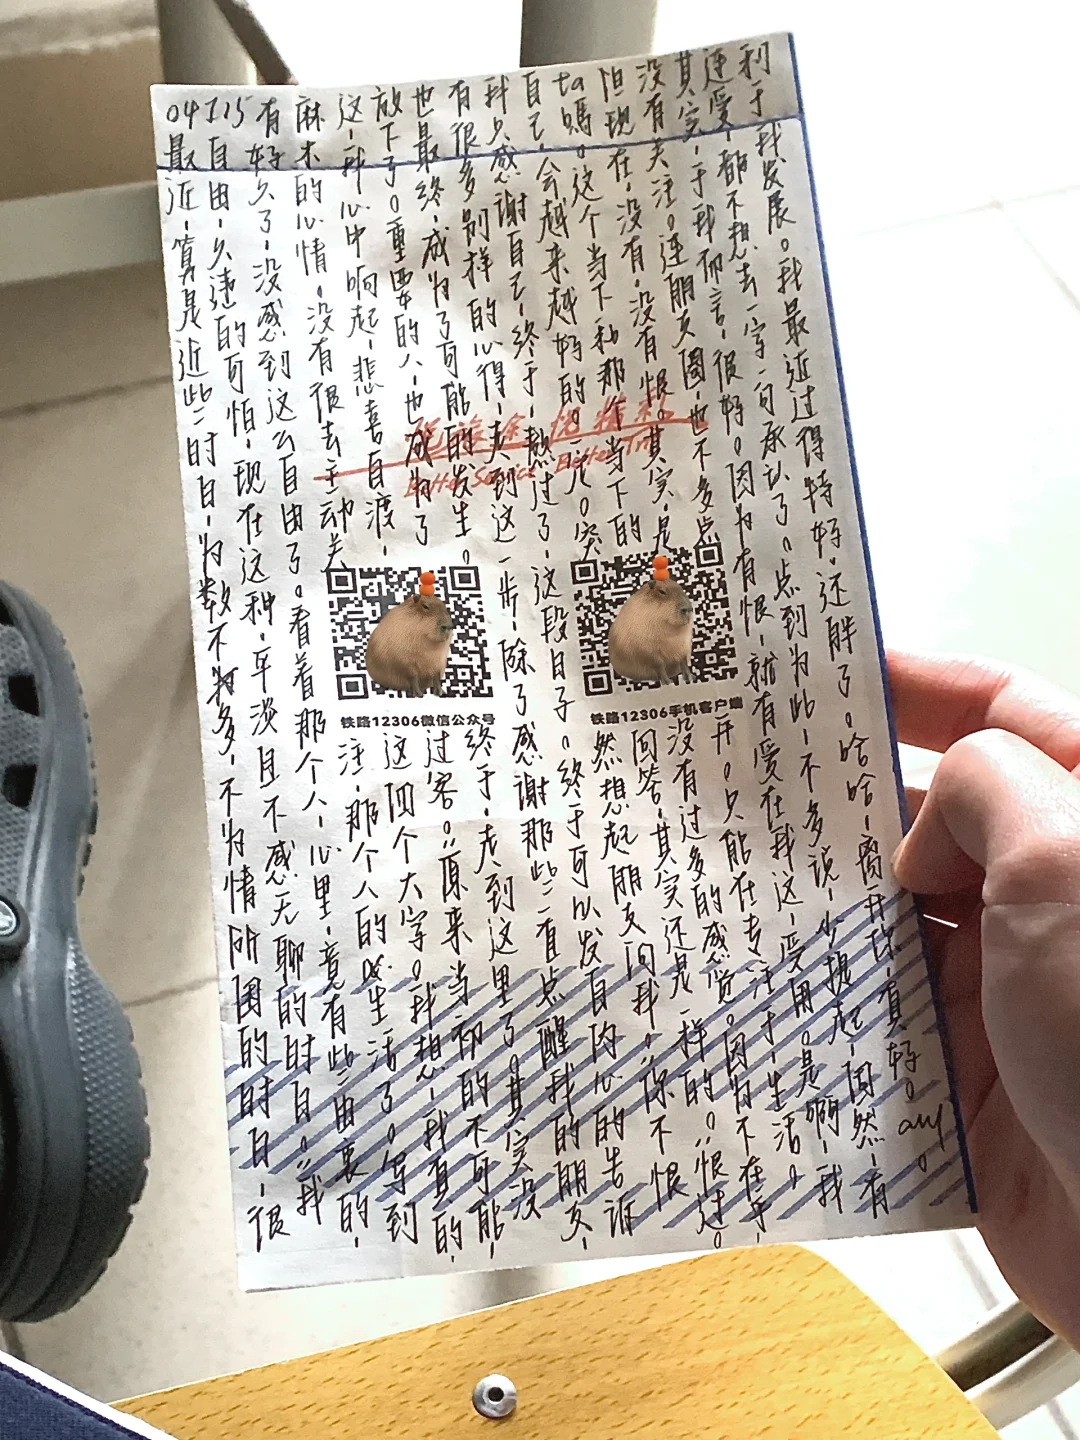 04115
最近，算是近些时日，为数不为多，不为情所困的时日，很
自由，久违的可怕，现在这种，平淡且不感无聊的时日。我
有好久了，没感到这么自由了。看着那个人，心里，竟有些由衷的，
麻木的心情。没有很去主动关注，那个人的生活了。写到
这，我心中响起，悲喜自渡，这四个大字。我想，我真的，
放下了。重要的人，也成为了过客。原来当初的不可能，
也最终，成为了可能的发生。终于，走到这里了。其实没
有很多别样的心得，走到这一步，除了感谢那些，有点醒我的朋友，
我只感谢自己，终于，熬过了，这段日子。终于可以发自内心的告诉
自己，会越来越好的。突然想起朋友问我，“你不恨
ta嗎。这个当下和那个当下的回答，其实还是一样的。“恨过。
但现在，没有，没有恨。其实，是没有过多的感觉。因为不在乎，
没有关注。连朋友圈，也不多点开。只能在专注于，生活。
其实，于我而言，很好。因为有恨，就有爱在我这，受用。是啊，我
连爱，都不想去一字一句承认了。点到为止，不多说，少提起，固然，有
利于我发展。我最近过得特好，还胖了。哈哈，离开你，真好。
铁路12306微信公众号
铁路12306手机客户端